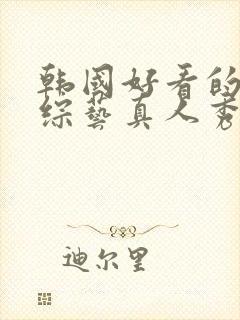 韩国好看的
综艺真人秀
迪尔里